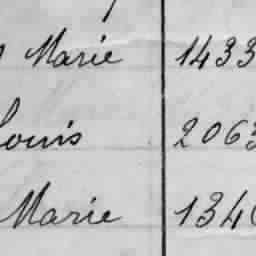 Marie 1433
Louis 2063
Marie 1340